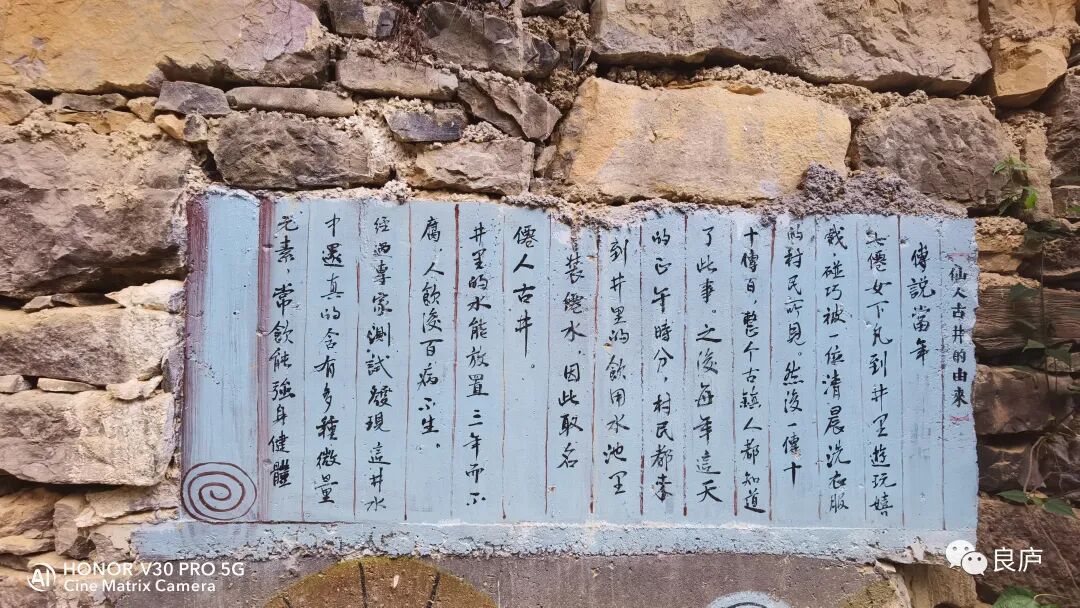 【仙人古井的由来】
傳說當年
七僊女下凡到井里遊玩嬉
戲,碰巧被一位清晨洗衣服
的村民所見。然後一傳十
十傳百,整个古鎮人都知道
了此事。之後每年這天
的正午時分,村民都來
到井里的飲用水池里
裝僊水,因此取名
僊人古井。
井里的水能放置三年而不
腐,人飲後百病不生。
經西專家測試發現這井水
中還真的含有多種微量
元素,常飲能強身健體
AI
HONOR V30 PRO 5G
Cine Matrix Camera
良庐